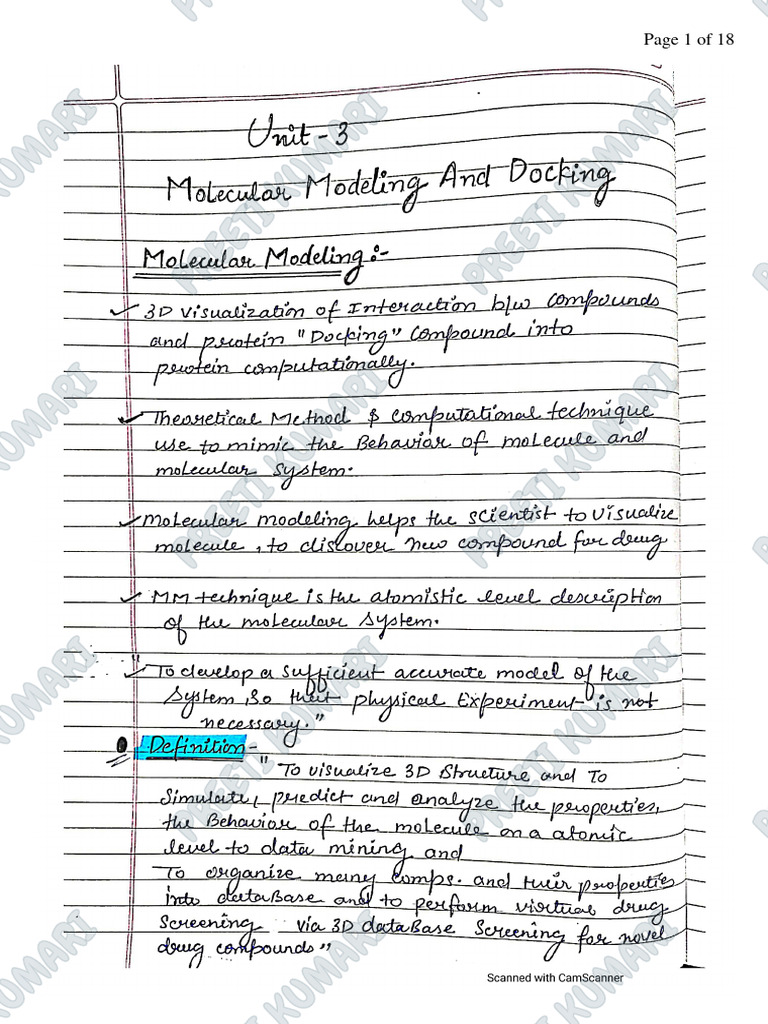 Page 1 of 18
Unit - 3
Molecular Modeling And Docking
Molecular Modeling :-
✓ 3D visualization of Interaction b/w compounds
and protein "Docking" compound into
protein computationally.
✓ Theoretical Method & computational technique
use to mimic the Behavior of molecule and
molecular system.
✓ Molecular modeling helps the scientist to visualize
molecule, to discover new compound for drug
✓ MM technique is the atomistic level description
of the molecular system.
"
✓ To develop a sufficient accurate model of the
system, so that physical Experiment is not
necessary."
Definition -
"To visualize 3D Structure and To
Simulate, predict and analyze the properties,
the Behavior of the molecule on a atomic
level to data mining and
To organize many comps. and their properties
into dataBase and to perform virtual drug
Screening via 3D dataBase Screening for novel
drug compounds"
Scanned with CamScanner
PREETI KUMARI